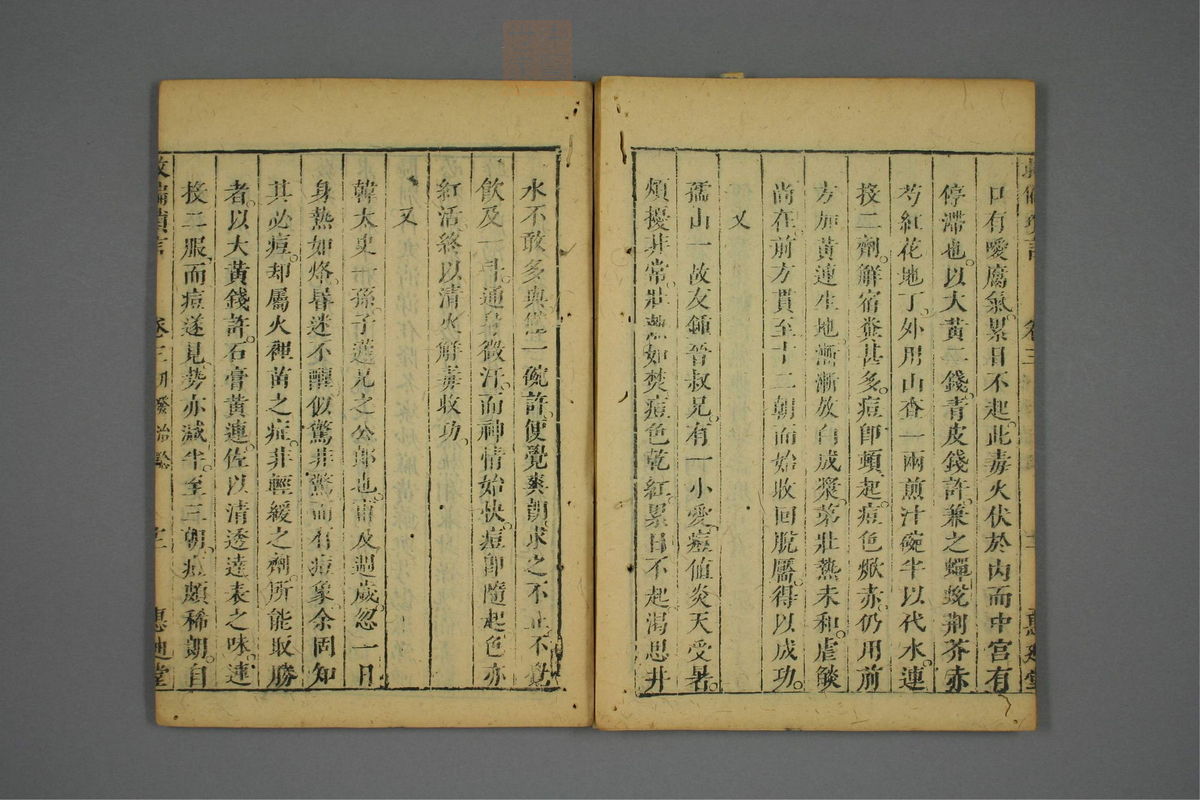 口有噯腐氣累日不起此毒火伏於內而中宮有
停滯也以大黃二錢青皮錢許兼之蟬蛻荆芥赤
芍紅花地丁外用山查一兩煎汁碗半以代水連
投二劑解宿糞甚多痘即頓起痘色焮赤仍用前
方加黃連生地漸漸放白成漿第壯熱未和虐燄
尚在前方貫至十二朝而始收回脫靨得以成功
又
孺山一故友鍾晉叔兄有一小愛痘值炎天受暑
煩擾非常壯熱如焚痘色乾紅累日不起渴思井
水不敢多與僅一碗許便覺爽朗求之不止不覺
飲及一斗通身微汗而神情始快痘即隨起色亦
紅活終以清火解毒收功
又
韓太史孫子蘧兄之公郎也甫及週歲忽一日
身熱如烙昏迷不醒似驚非驚而有痘象余固知
其必痘却屬火裡苗之症非輕緩之劑所能取勝
者以大黃錢許石膏黃連佐以清透達表之味連
投二服而痘遂見勢亦減半至三朝痘頗稀朗自
救偏瑣言 卷三 惠迪堂